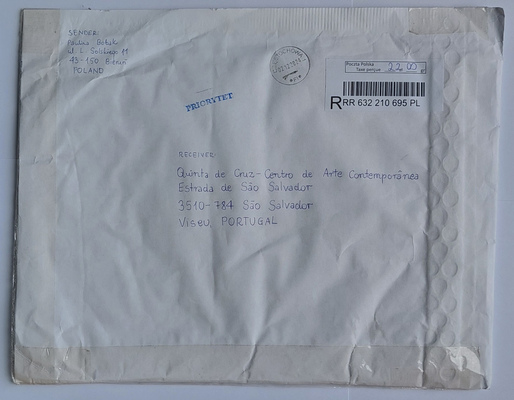 SENDER:
Paulina
ul. L.
43-150 Bieruń
POLAND
CZĘSTOCHOWA
PRIORYTET
Poczta Polska
Taxe perçue
R RR 632 210 695 PL
RECEIVER:
Quinta de Cruz - Centro de Arte Contemporânea
Estrada de São Salvador
3510-784 São Salvador
Viseu, PORTUGAL